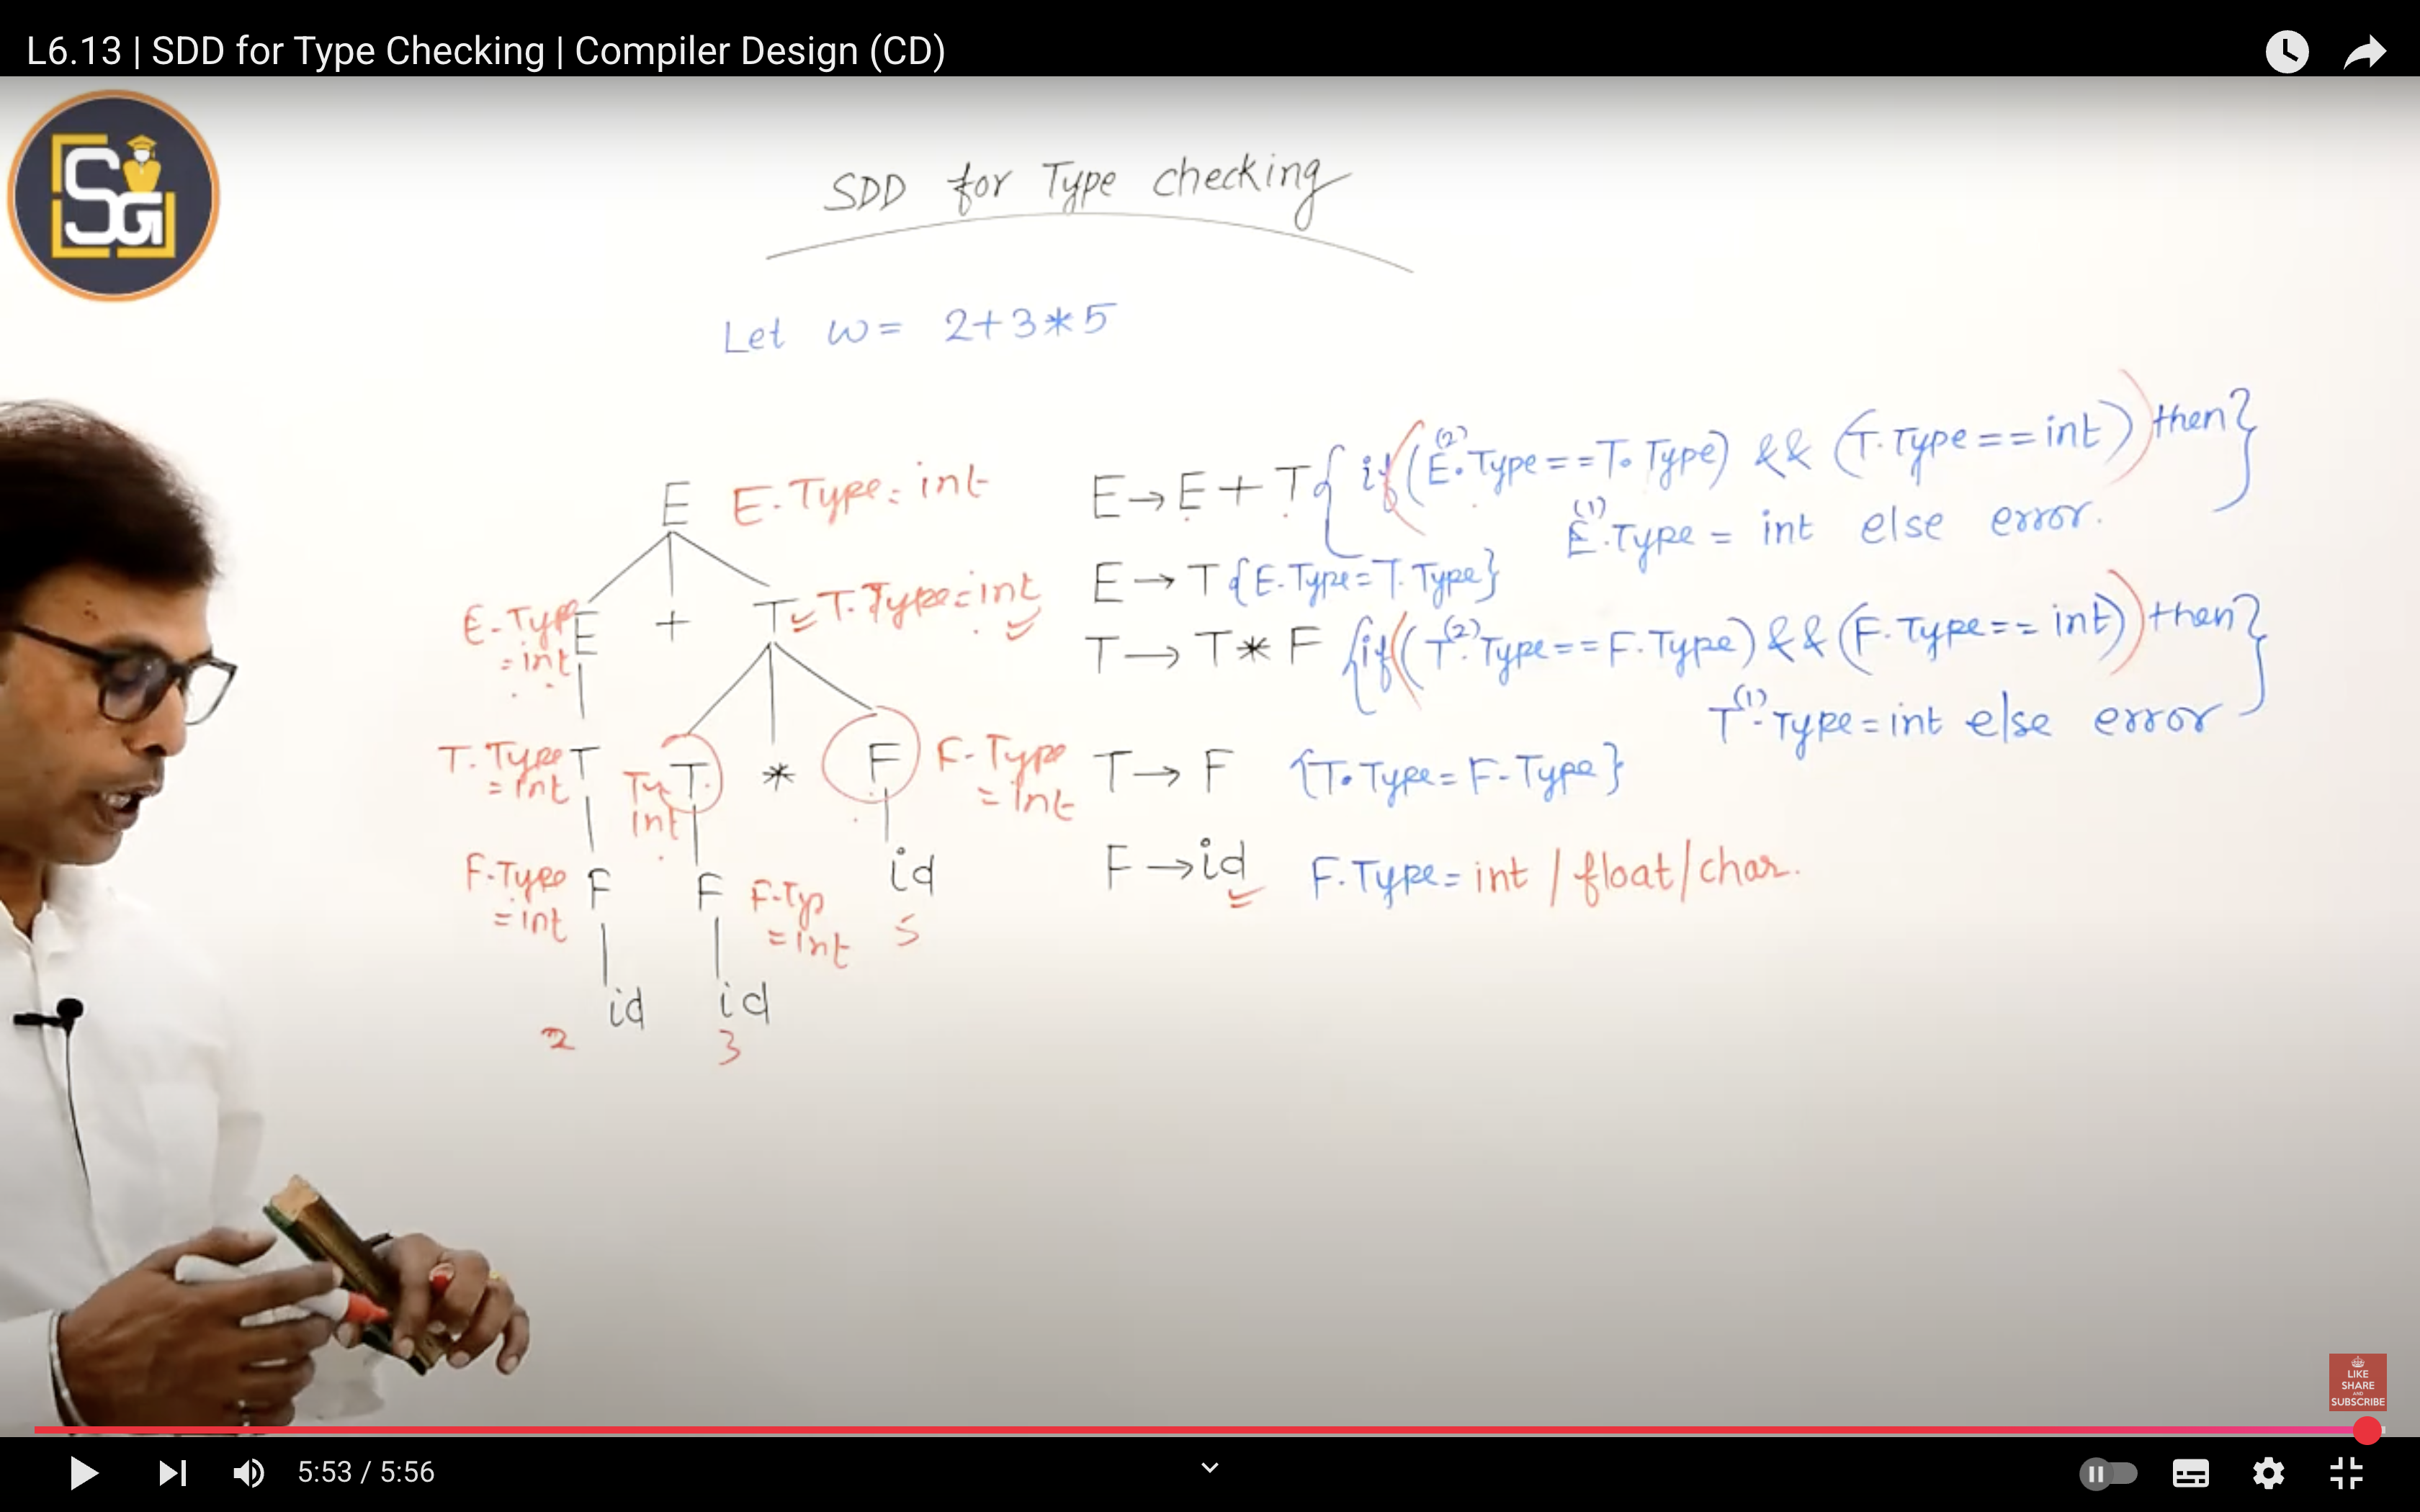 L6.13 | SDD for Type Checking | Compiler Design (CD)
SG
SDD for Type checking
Let w = 2+3*5
E E.Type= int
E.Type = int E + T T.Type=int
T.Type = int T Ty int T * F F-Type = int
F-Type = int F F F-Typ = int id 5
id 2 id 3
E → E + T { if ((E(2).Type==T.Type) && (T.Type==int)) then
E(1).Type = int else error. }
E → T {E.Type=T.Type}
T → T * F {if((T(2).Type==F.Type)&&(F.Type==int)) then
T(1).Type=int else error }
T → F {T.Type=F-Type}
F → id F.Type= int / float / char.
LIKE
SHARE
AND
SUBSCRIBE
5:53 / 5:56